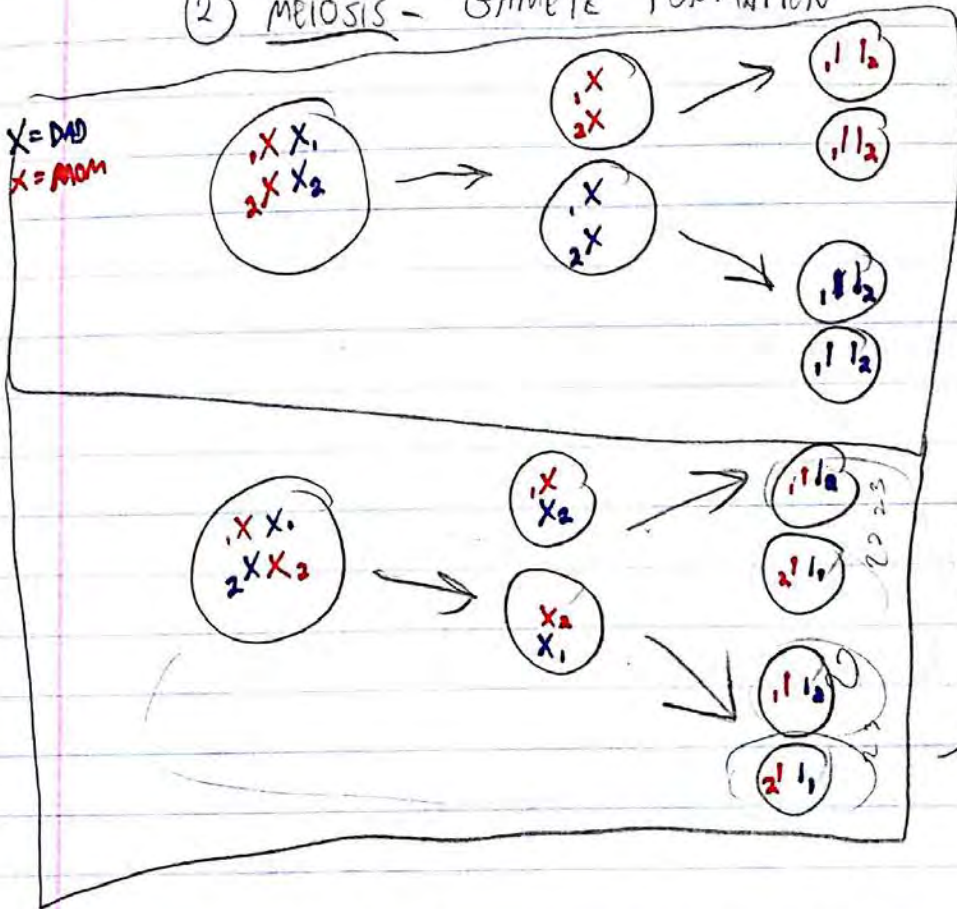 ② MEIOSIS - GAMETE FORMATION
X = DAD
X = MOM
1X X1
2X X2
1X
2X
1X
2X
1| |2
1| |2
1| |2
1| |2
1X X1
2X X2
1X
X2
X2
X1
1| |2
2| |1
1| |2
2| |1